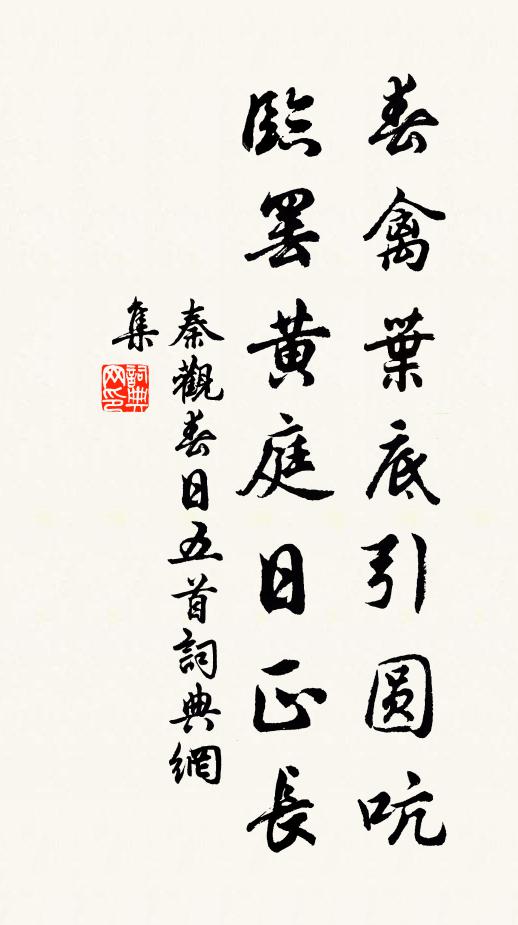 春禽葉底引圓吭
臨罷黃庭日正長
秦觀春日五首詞典網
集
詞典
网印